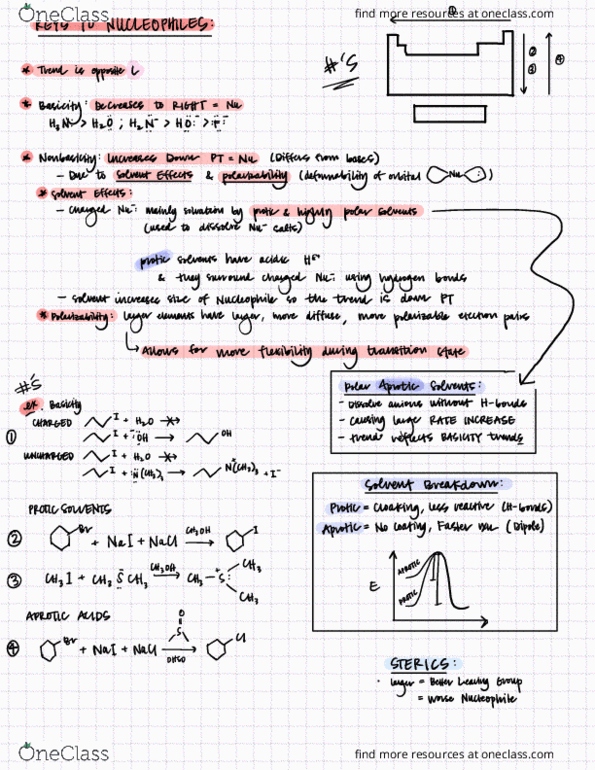 OneClass
find more resources at oneclass.com
KEYS TO NUCLEOPHILES:
* Trend is opposite L
#'S
①
②
③
④
* Basicity: Decreases to RIGHT = Nu
H₃N > H₂O ; H₂N⁻ > HO⁻ > F⁻
* Nonbasicity: Increases Down PT = Nu (Differs from bases)
- Due to Solvent Effects & polarizability (deformability of orbital Nu :)
* Solvent Effects:
- Charged Nu⁻: mainly solvation by protic & highly polar solvents
(used to dissolve Nu⁻ salts)
protic solvents have acidic H
& they surround charged Nu⁻: using hydrogen bonds
- solvent increases size of Nucleophile so the trend is down PT
* Polarizability: larger elements have larger, more diffuse, more polarizable electron pairs
Allows for more flexibility during transition state
Polar Aprotic Solvents:
- Dissolve anions without H-bonds
- causing large RATE INCREASE
- trend reflects BASICITY trends
#'S
ex. Basicity
CHARGED
I + H₂O
①
I + ⁻OH → OH
UNCHARGED
I + H₂O
I + N(CH₃)₃ → N⁺(CH₃)₃ + I⁻
Solvent Breakdown:
Protic = Cloaking, less reactive (H-bonds)
Aprotic = No coating, Faster (Dipole)
E
APROTIC
PROTIC
PROTIC SOLVENTS
② Br + NaI + NaCl CH₃OH → I
③ CH₃I + CH₃SCH₃ CH₃OH → CH₃-S⁺: CH₃ CH₃
APROTIC ACIDS
④ Br + NaI + NaCl O S DMSO → Cl
STERICS:
· larger = Better Leaving Group
= Worse Nucleophile
OneClass
find more resources at oneclass.com